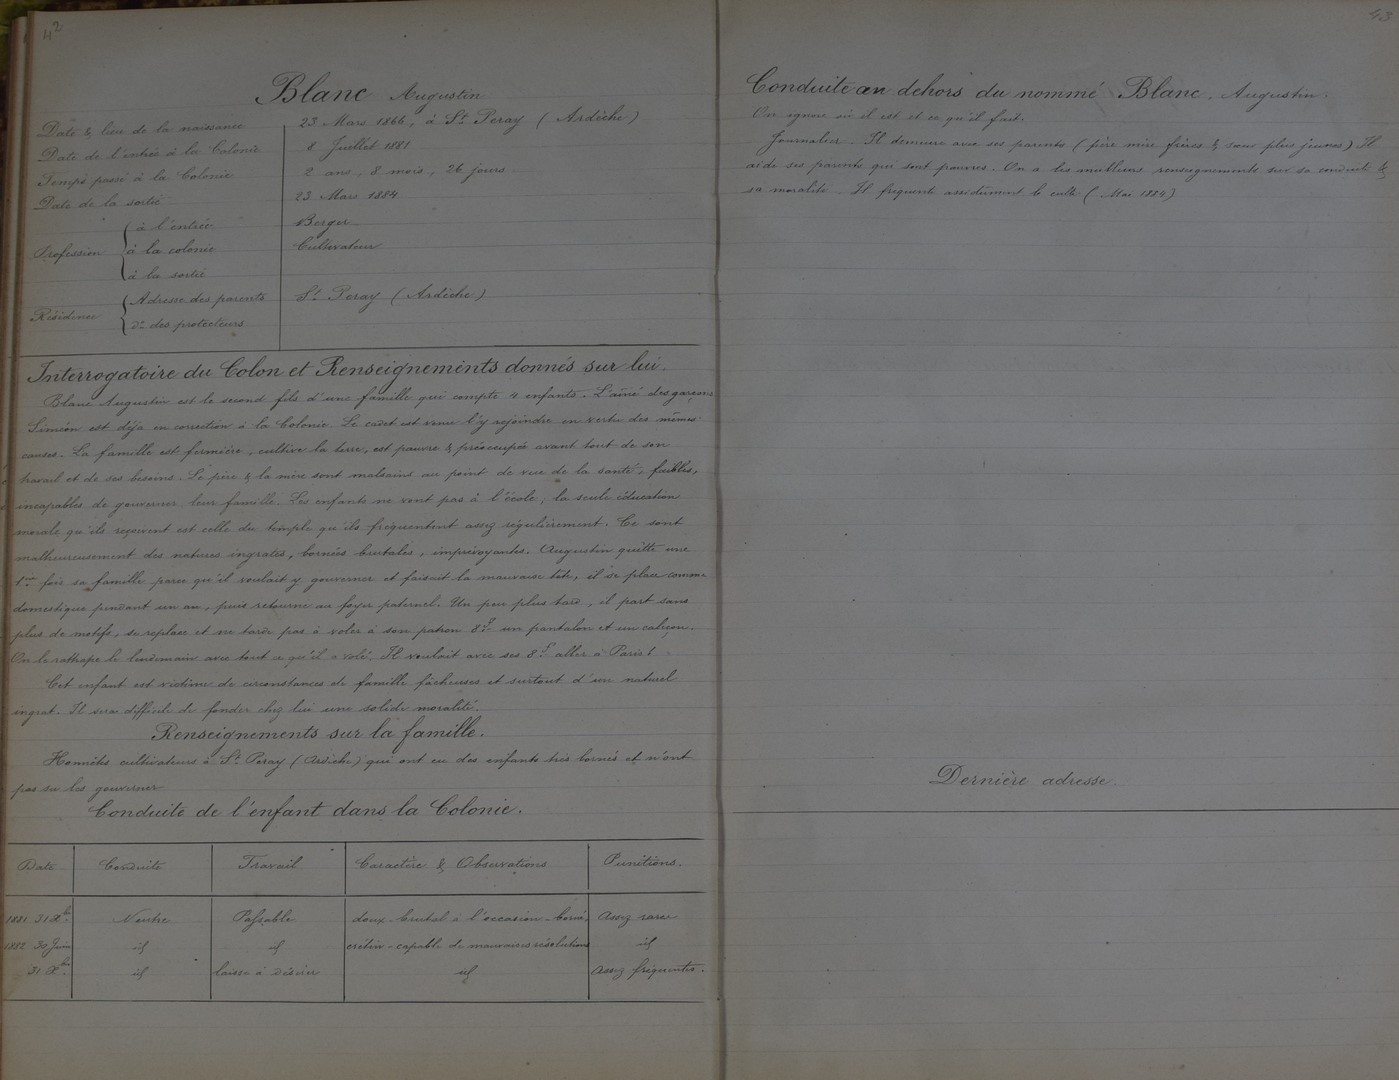 42
Blanc Augustin
Date & lieu de la naissance 23 Mars 1866, à St Peray (Ardèche)
Date de l'entrée à la Colonie 8 Juillet 1881
Temps passé à la Colonie 2 ans, 8 mois, 26 jours
Date de la sortie 23 Mars 1884
Profession à l'entrée Berger
à la colonie Cultivateur
à la sortie
Résidence Adresse des parents St Peray (Ardèche)
do des protecteurs
Interrogatoire du Colon et Renseignements donnés sur lui.
Blanc Augustin est le second fils d'une famille qui compte 4 enfants. L'aîné des garçons
Siméon est déjà en correction à la Colonie. Le cadet est venu l'y rejoindre en vertu des mêmes
causes. La famille est fermière, cultive la terre, est pauvre & préoccupée avant tout de son
travail et de ses besoins. Le père & la mère sont malsains au point de vue de la santé, faibles,
incapables de gouverner leur famille. Les enfants ne vont pas à l'école; la seule éducation
morale qu'ils reçoivent est celle du temple qu'ils fréquentent assez régulièrement. Ce sont
malheureusement des natures ingrates, bornées brutales, imprévoyantes. Augustin quitte une
1ère fois sa famille parce qu'il voulait y gouverner et faisait la mauvaise tête, il se place comme
domestique pendant un an, puis retourne au foyer paternel. Un peu plus tard, il part sans
plus de motifs, se replace et ne tarde pas à voler à son patron 8f un pantalon et un caleçon.
On le rattrape le lendemain avec tout ce qu'il a volé. Il voulait avec ses 8f aller à Paris!
Cet enfant est victime de circonstances de famille fâcheuses et surtout d'un naturel
ingrat. Il sera difficile de fonder chez lui une solide moralité.
Renseignements sur la famille.
Honnêtes cultivateurs à St Peray (Ardèche) qui ont eu des enfants très bornés et n'ont
pas su les gouverner
Conduite de l'enfant dans la Colonie.
Date Conduite Travail Caractère & Observations Punitions.
1881 31 Xbre Neutre Passable doux - brutal à l'occasion - borné, Assez rares
1882 30 Juin id id crétin - capable de mauvaises résolutions id
31 Xbre id laisse à désirer id Assez fréquentes.
43
Conduite en dehors du nommé Blanc. Augustin.
On ignore où il est et ce qu'il fait.
Journalier. Il demeure avec ses parents (père mère frères & sœur plus jeunes) Il
aide ses parents qui sont pauvres. On a les meilleurs renseignements sur sa conduite &
sa moralité. Il fréquente assidûment le culte (Mai 1884)
Dernière adresse.